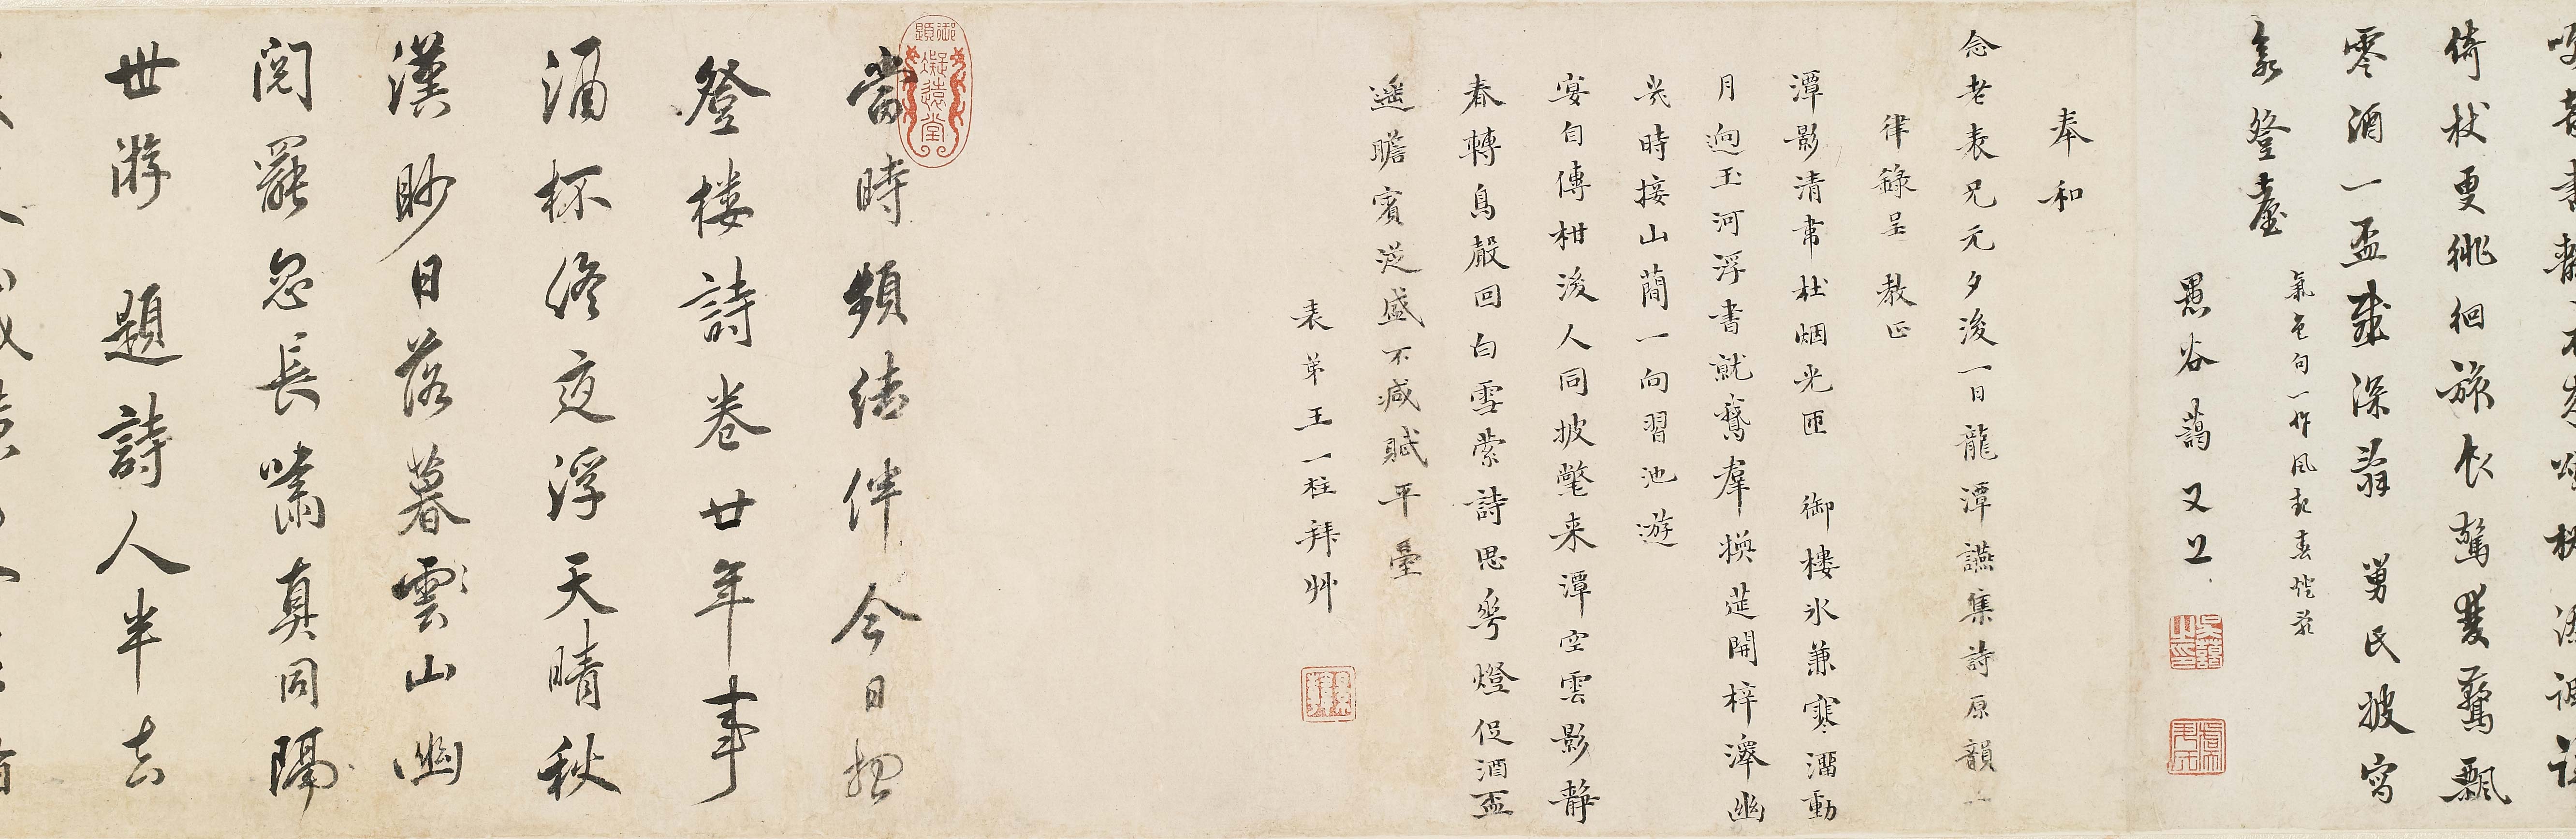 倚杖更徘徊旅衣鶩雙鶩飄
零酒一盃深翁 男民披寫
氣色句一作風起春燈敬
氣登臺
愚谷藹又上
奉和
念老表兄元夕後一日龍潭讌集詩原韻二
律錄呈 教正
潭影清韋杜烟光匝 御樓氷兼寒溜動
月迥玉河浮書就鵞羣換筵開梓澤幽
光時接山蕳一向習池遊
宴自傳柑後人同披氅来潭空雲影靜
春轉鳥聲回白雪縈詩思華燈促酒盃
遥瞻賓從盛不減賦平臺
表弟王一柱拜艸
御題
凝遠堂
當時頻結伴今日把
登樓詩卷廿年事
酒杯終夜浮天晴秋
漢眇日落暮雲山幽
閱罷忽長嘯真同隔
世游 題詩人半去